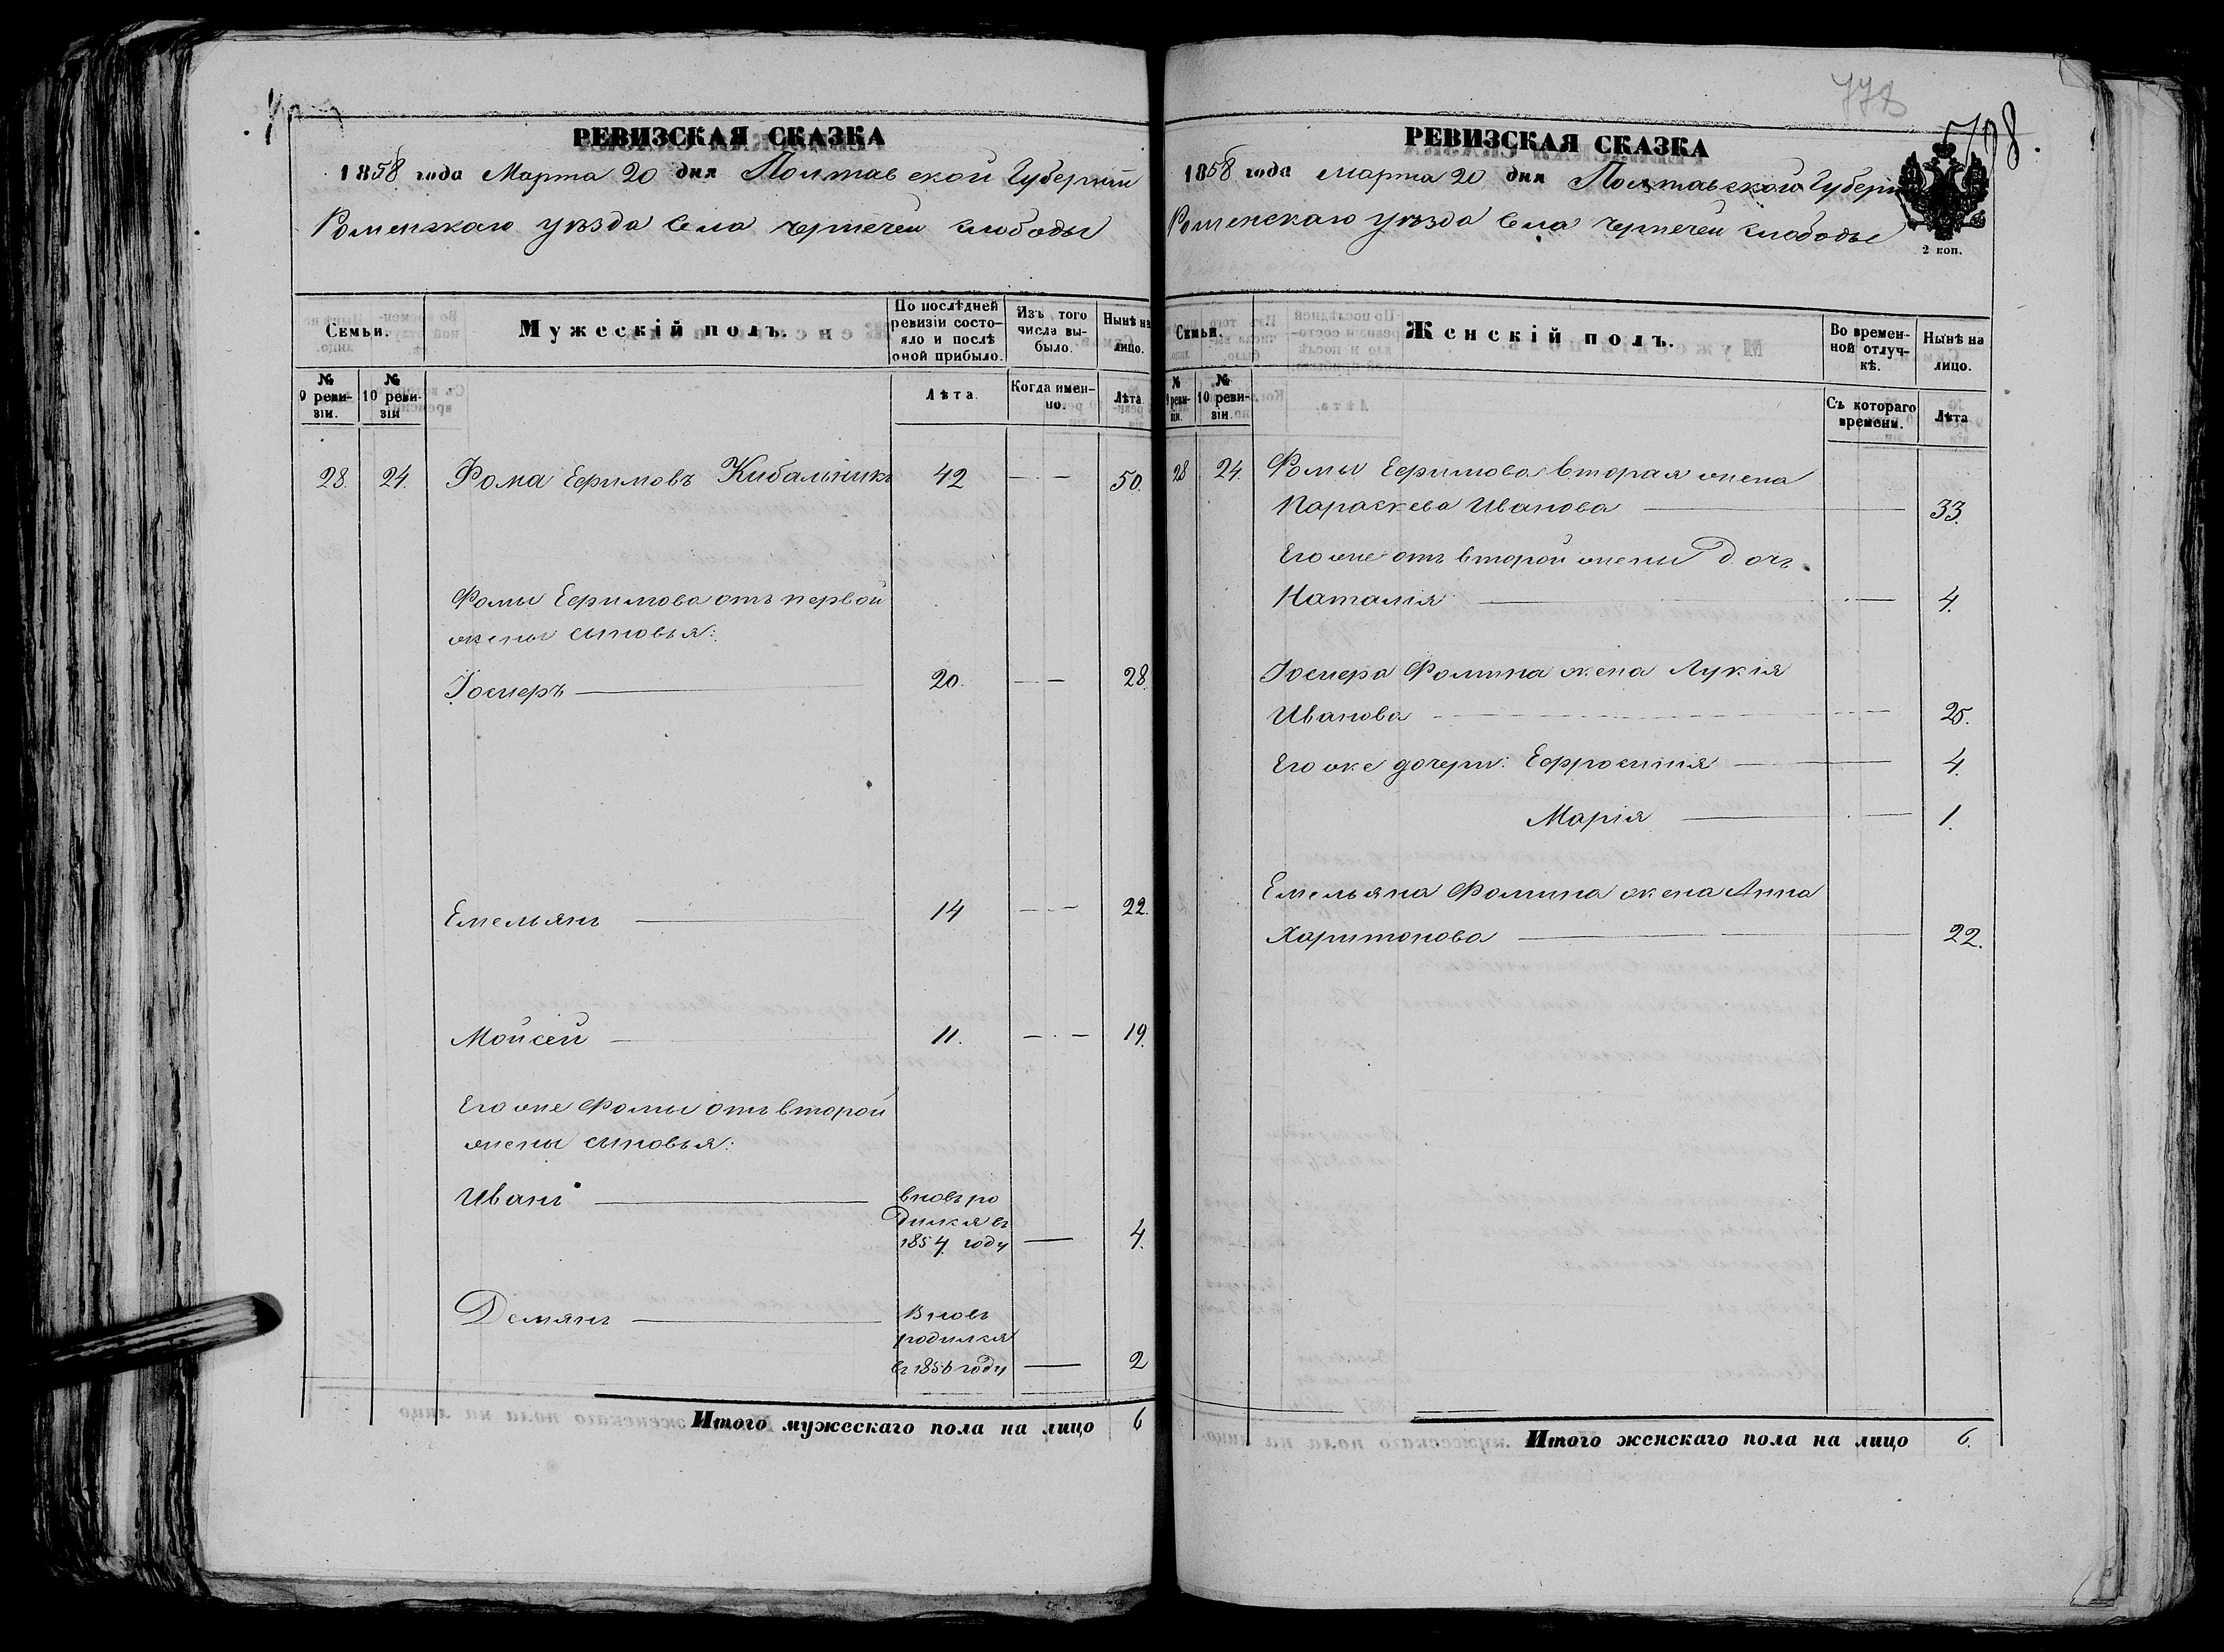 РЕВИЗСКАЯ СКАЗКА
1858 года Марта 20 дня Полтавской Губерніи
Роменскаго уѣзда села Чернечей слободы
Семьи.
Мужескій полъ.
По послѣдней ревизіи состояло и послѣ оной прибыло.
Изъ того числа выбыло.
Нынѣ на лицо.
№ 9 ревизіи.
№ 10 ревизіи
Лѣта.
Когда именно.
Лѣта.
28. 24. Фома Ефимовъ Кибальникъ 42 — 50.
Фомы Ефимова отъ первой
жены сыновья:
Іосиеръ 20. — 28.
Емельянъ 14 — 22.
Мойсей 11. — 19.
Его же Фомы отъ второй
жены сыновья:
Иванъ вновь ро
дился въ
1854 году — 4.
Демянъ Вновь
родился
въ 1856 году — 2
Итого мужескаго пола на лицо 6
778
798.
РЕВИЗСКАЯ СКАЗКА
1858 года марта 20 дня Полтавской Губерн
Роменскаго уѣзда села Чернечей слободы
2 коп.
Семьи.
Женскій полъ.
Во временной отлучкѣ.
Нынѣ на лицо.
№ 9 ревизіи.
№ 10 ревизіи.
Съ котораго времени.
Лѣта
28 24. Фомы Ефимова вторая жена
Параскева Иванова 33.
Его же отъ второй жены дочь
Наталія — 4.
Іосиера Фомина жена Лукія
Иванова 25.
Его же дочери: Ефросинія 4.
Марія 1.
Емельяна Фомина жена Анна
Харитонова 22.
Итого женскаго пола на лицо 6.